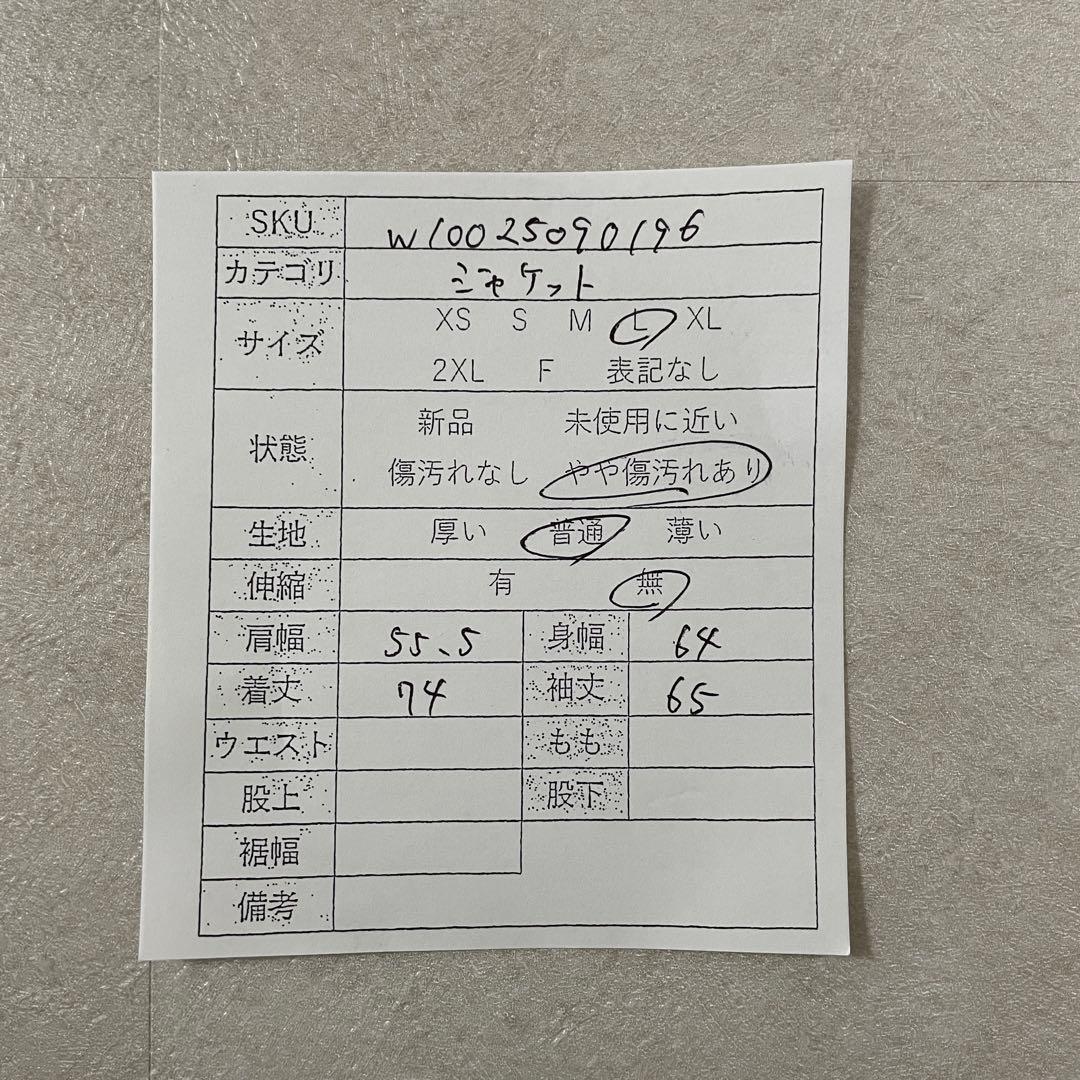 SKU W10025090196
カテゴリ ジャケット
サイズ XS S M L XL
2XL F 表記なし
状態 新品 未使用に近い
傷汚れなし やや傷汚れあり
生地 厚い 普通 薄い
伸縮 有 無
肩幅 55.5 身幅 64
着丈 74 袖丈 65
ウエスト もも
股上 股下
裾幅
備考